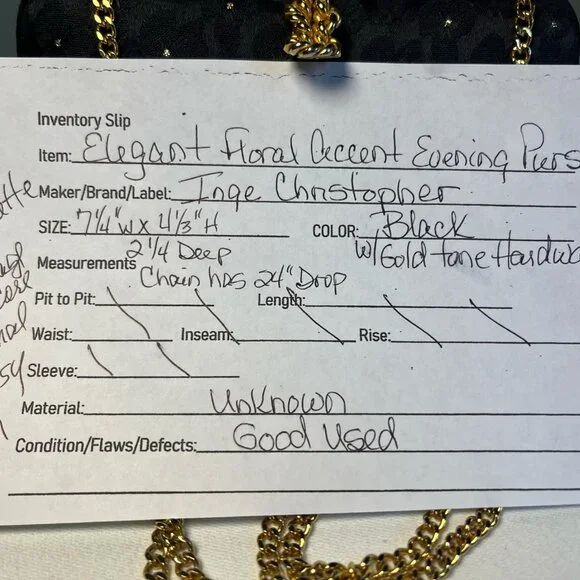 Inventory Slip
Item: Elegant Floral Accent Evening Purs
Maker/Brand/Label: Inge Christopher
SIZE: 7 1/4" W x 4 1/3" H COLOR: Black
2 1/4 Deep W/ Gold tone Hardwa
Measurements Chain has 24" Drop
Pit to Pit: Length:
Waist: Inseam: Rise:
Sleeve:
Material: Unknown
Condition/Flaws/Defects: Good Used